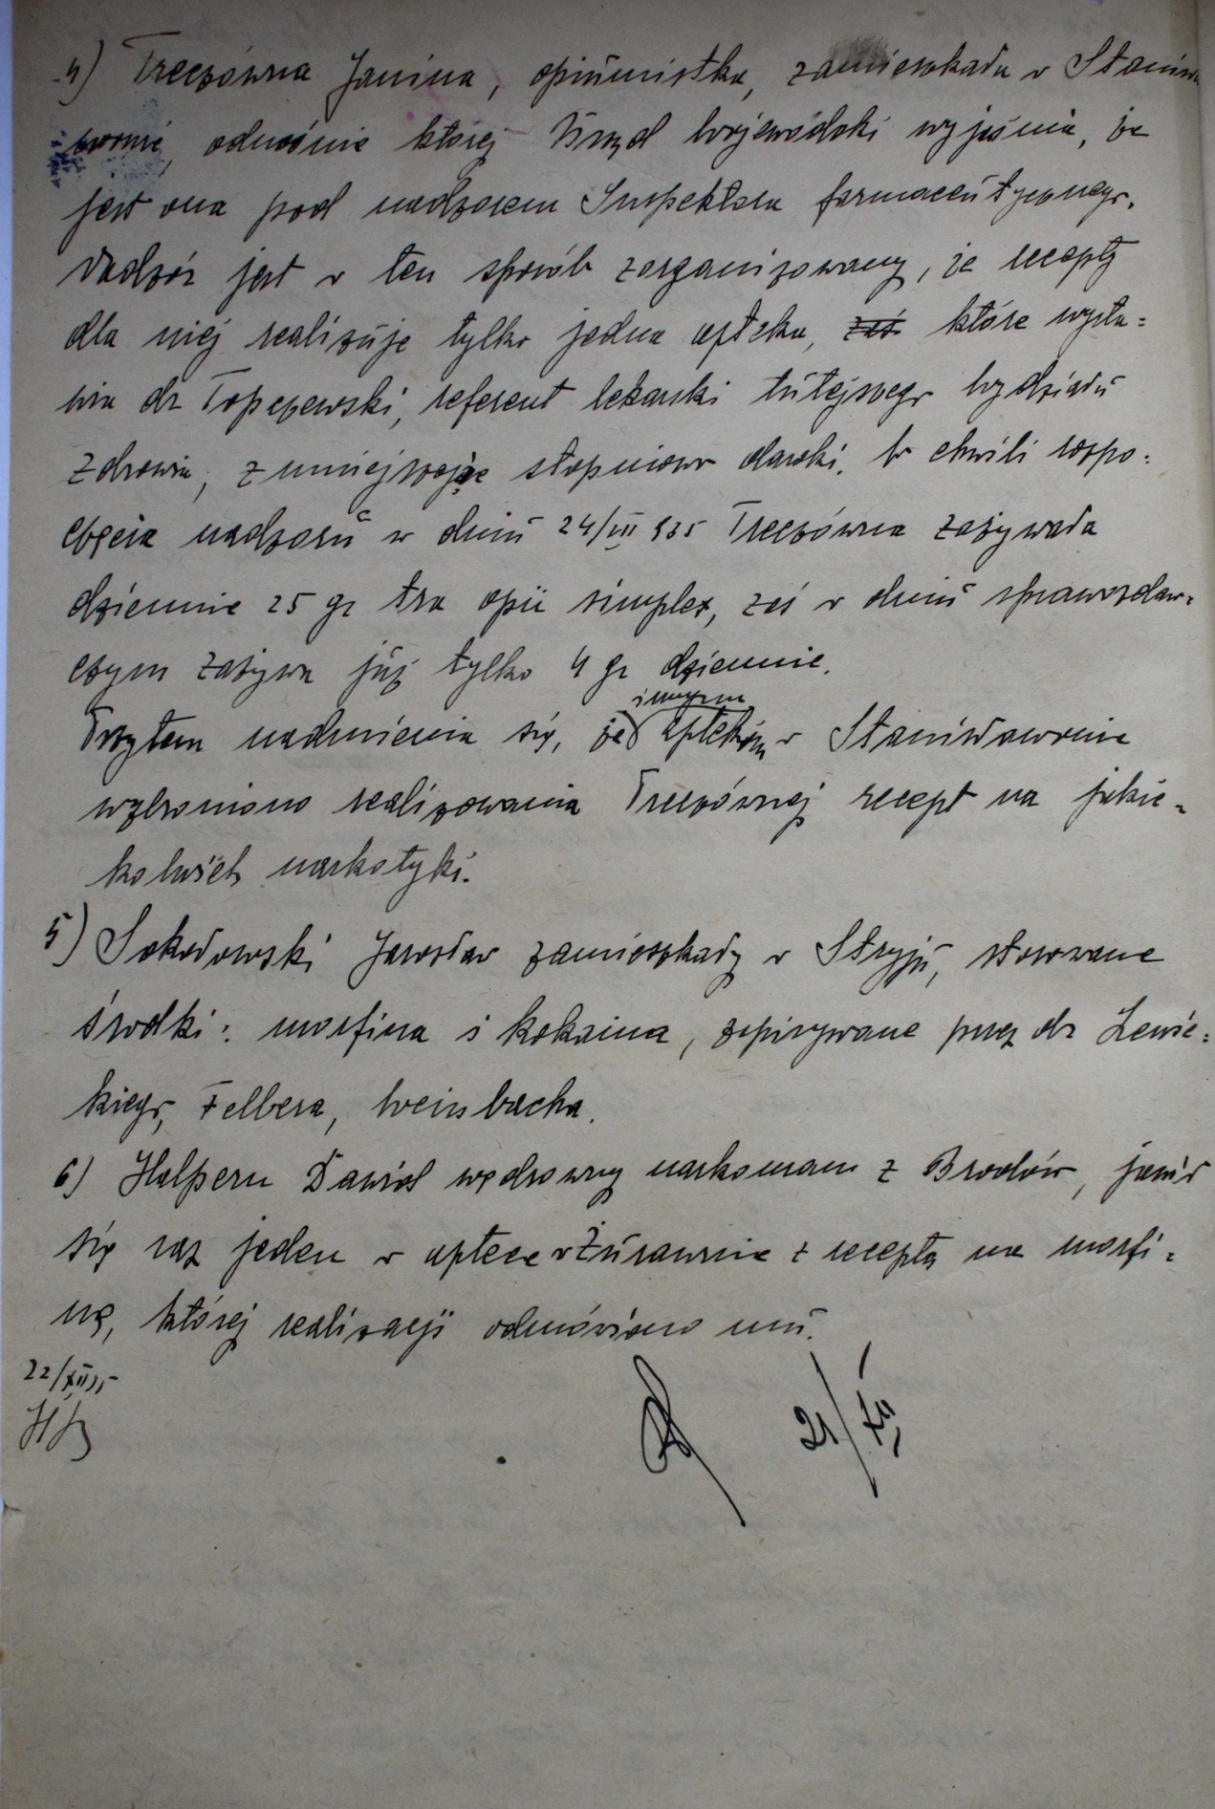 4) Trecsówna Janina, opiumistka, zamieszkała w Stanisła
wowie, odnośnie której Urząd Wojewódzki wyjaśnia, że
jest ona pod nadzorem Inspektora farmaceutycznego.
Nadzór jest w ten sposób zorganizowany, że recepty
dla niej realizuje tylko jedna apteka, zaś które wysta=
wia dr Topczewski, referent lekarski tutejszego Wydziału
Zdrowia, zmniejszając stopniowo dawki. W chwili rozpo=
częcia nadzoru w dniu 24/III 935 Trecsówna zażywała
dziennie 25 gr tra opii simplex, zaś w dniu sprawozdaw=
czym zażywa już tylko 4 gr dziennie.
Przytem nadmienia się, że innym aptekom w Stanisławowie
wzbroniono realizowania Trecsównej recept na jakie=
kolwiek narkotyki.
5) Sokołowski Jarosław zamieszkały w Stryju, stosowane
środki: morfina i kokaina, zapisywane przez dr Lewic=
kiego, Felbera, Weinbacha.
6) Halpern Dawid wędrowny narkoman z Brodów, jawił
się raz jeden w aptece w Żurawnie z receptą na morfi=
nę, której realizacji odmówiono mu.
22/XII 35
21/XII